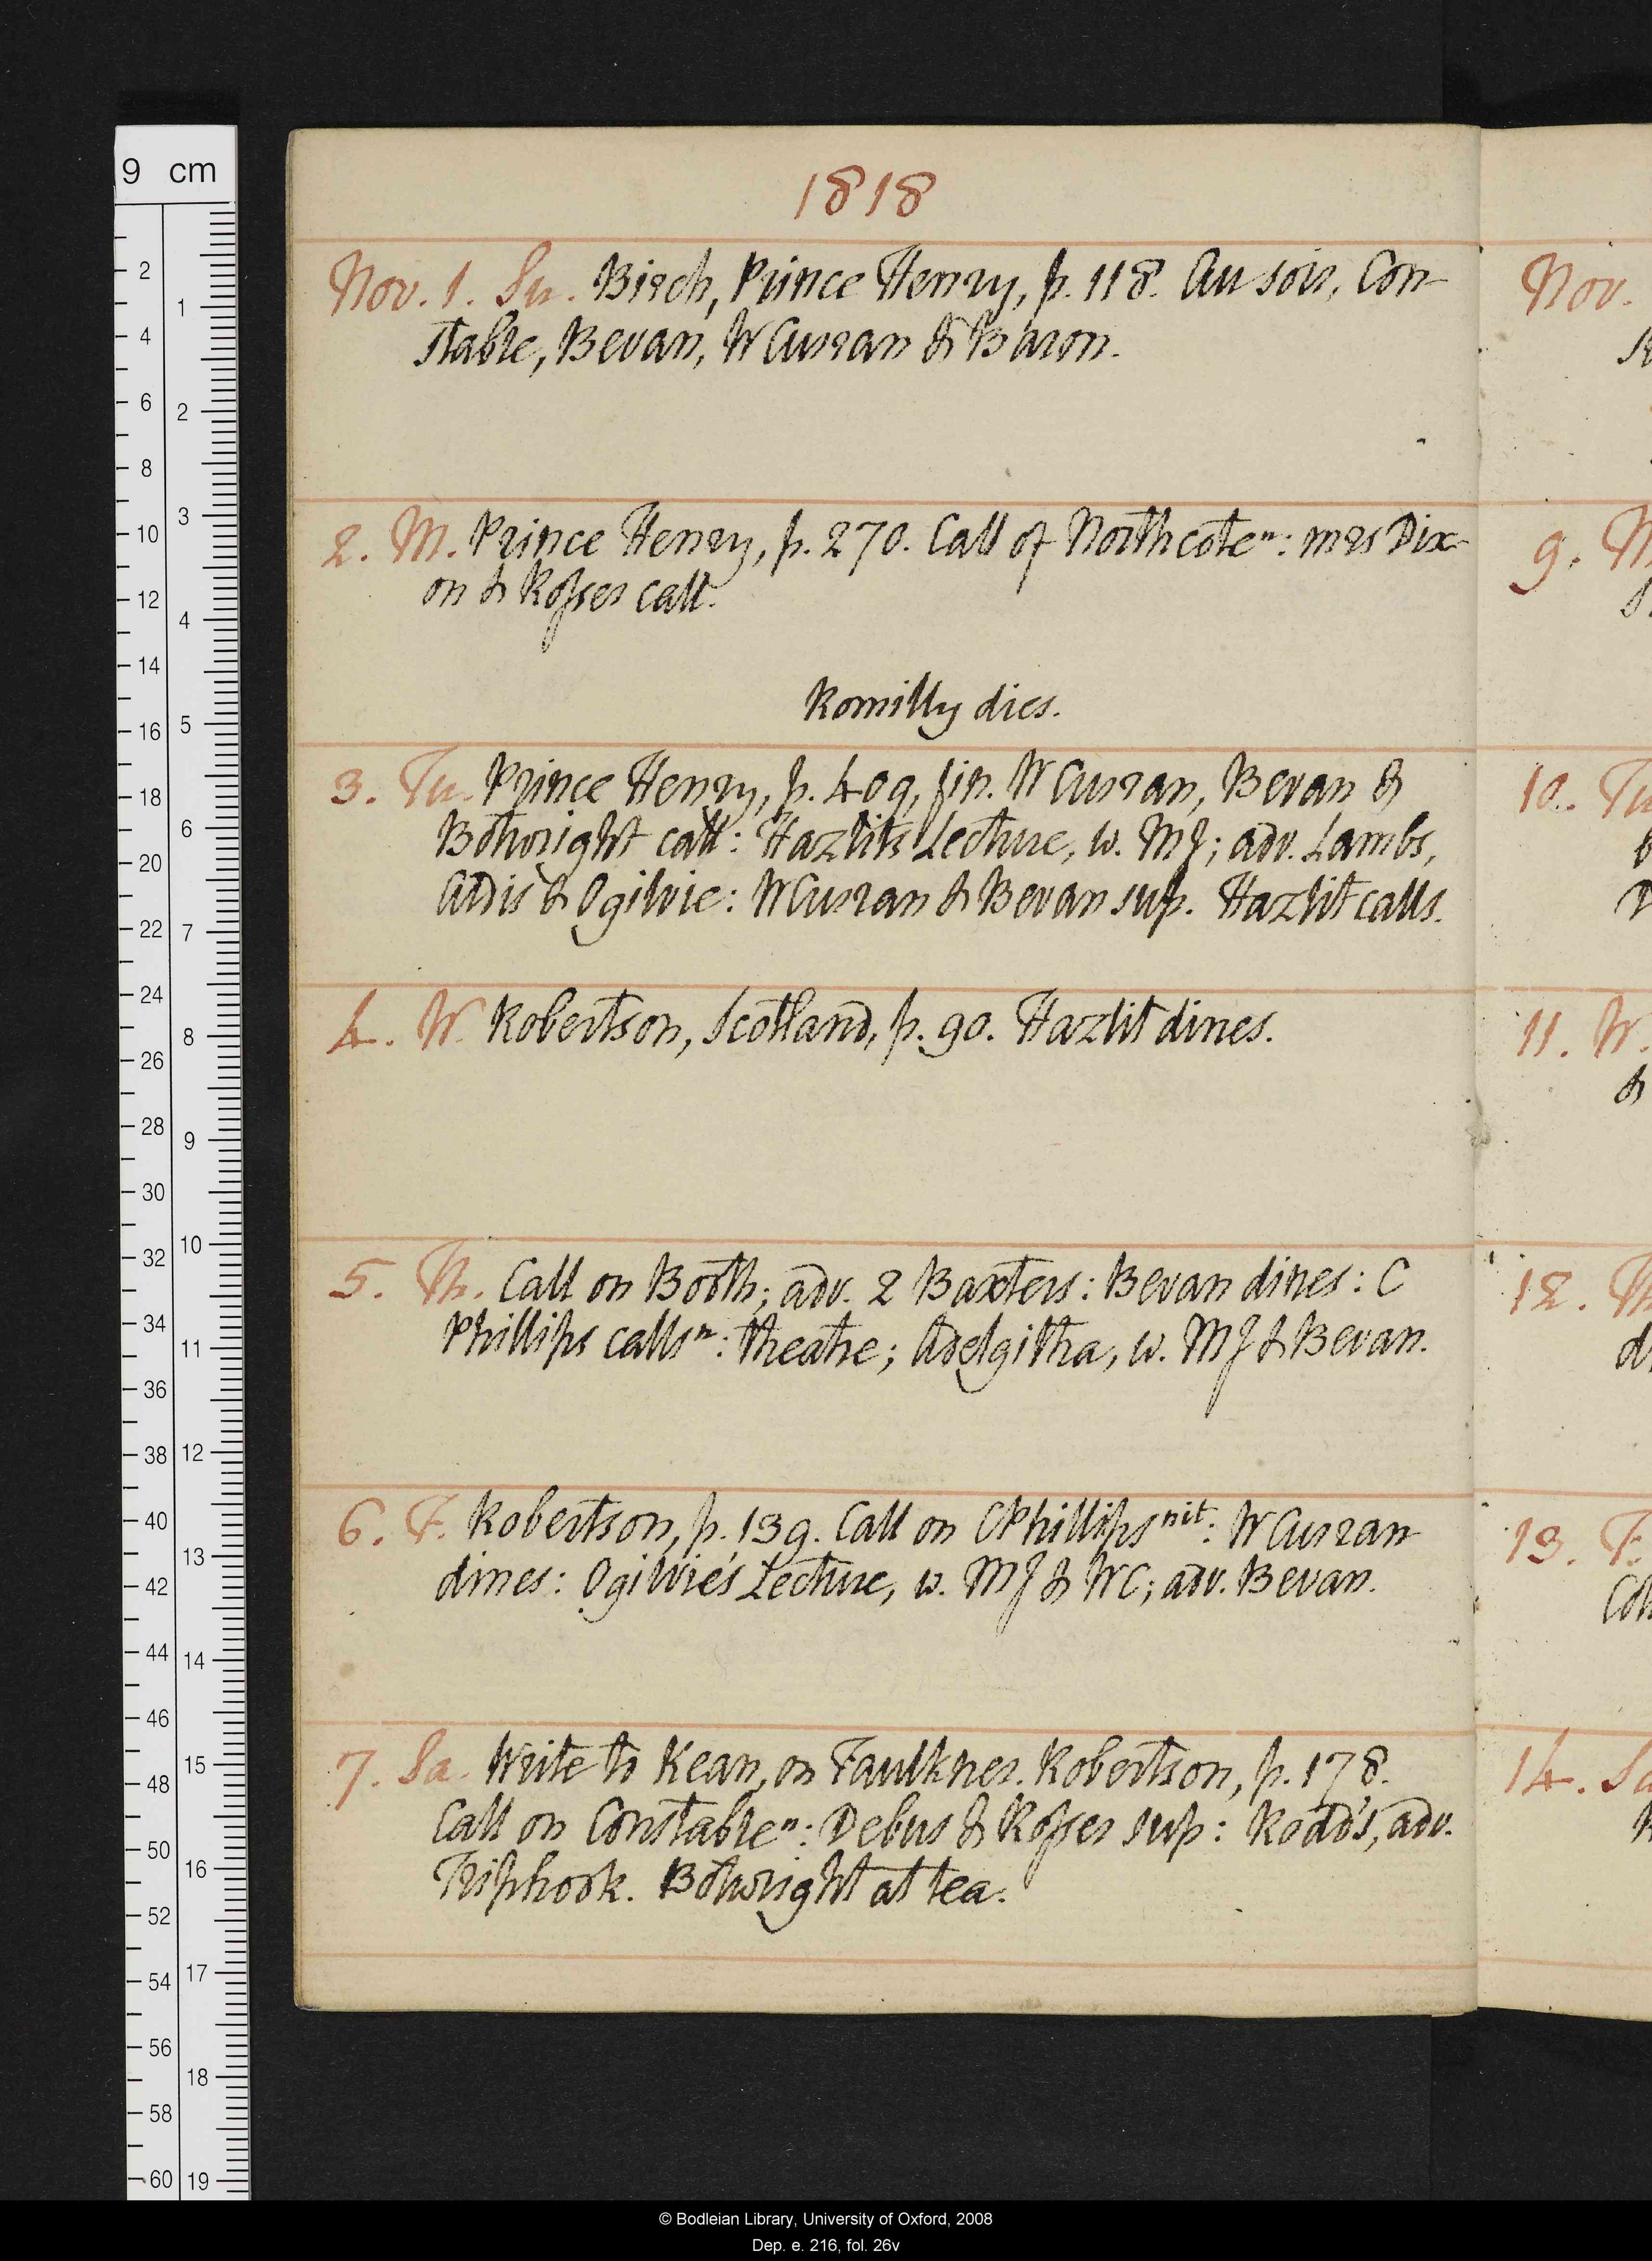 1818
Nov. 1. Su. Birch, Prince Henry, p. 118. Au soir, Con-
stable, Bevan, W Curran & Baron.
2. M. Prince Henry, p. 270. Call of Northcote n: mrs Dix-
on & Rosser call.
Romilly dies.
3. Tu. Prince Henry, p. 409, fin. W Curran, Bevan &
Botwright call: Hazlits Lecture, w. MJ; adv. Lambs,
Adis & Ogilvie: W Curran & Bevan sup. Hazlit calls.
4. W. Robertson, Scotland, p. 90. Hazlit dines.
5. Th. Call on Booth; adv. 2 Baxters: Bevan dines: C
Phillips calls n: theatre; Adelgitha, w. MJ & Bevan.
6. F. Robertson, p. 139. Call on C Phillips nit: W Curran
dines: Ogilvie's Lecture, w. MJ & WC; adv. Bevan.
7. Sa. Write to Kean, on Faulkner. Robertson, p. 178.
Call on Constable n: Debus & Rosser sup: Rodd's, adv.
Triphook. Botwright at tea.
Nov.
9. M
10. Tu
11. W.
&
12. Th
13. F.
14. Sa
9 cm
2
4
6
8
10
12
14
16
18
20
22
24
26
28
30
32
34
36
38
40
42
44
46
48
50
52
54
56
58
60
1
2
3
4
5
6
7
8
9
10
11
12
13
14
15
16
17
18
19
© Bodleian Library, University of Oxford, 2008
Dep. e. 216, fol. 26v